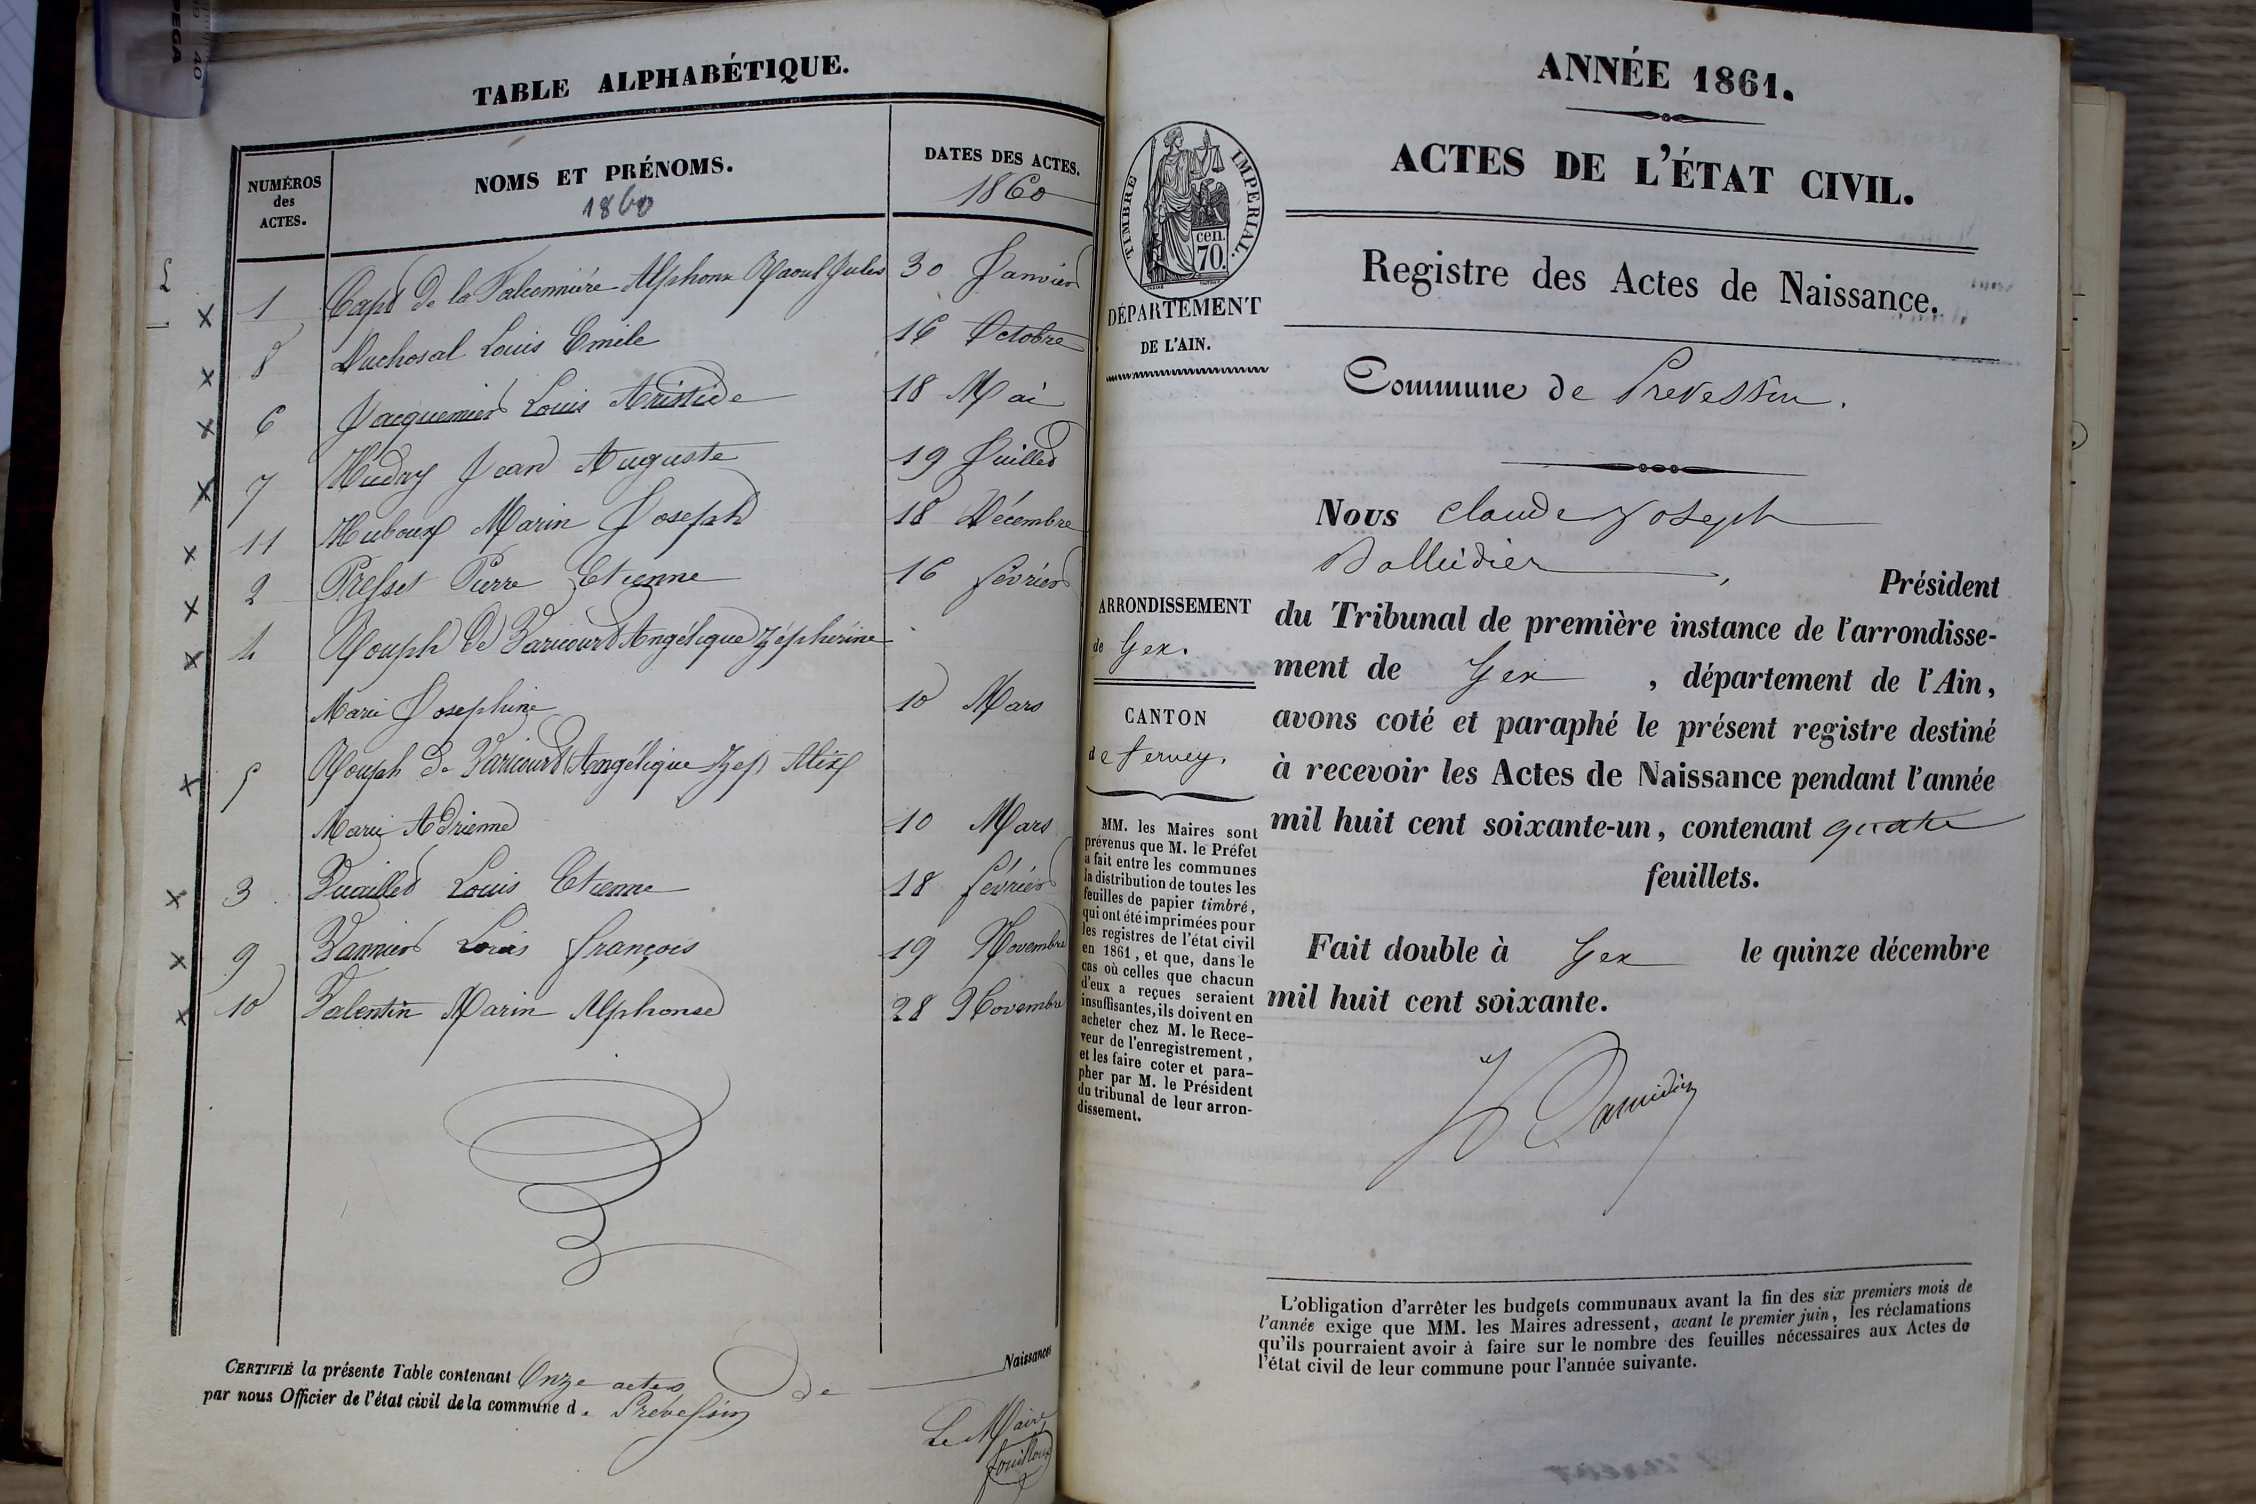 TABLE ALPHABÉTIQUE.
NUMÉROS des ACTES. NOMS ET PRÉNOMS. 1860 DATES DES ACTES. 1860
1 Capd De la Falconnière Alphonse Raoul Jules 30 Janvier
8 Duchosal Louis Emile 16 Octobre
6 Jacquemier Louis Aristide 18 Mai
7 Hudry Jean Auguste 19 Juillet
11 Marin Joseph 18 Décembre
2 Presset Pierre Etienne 16 février
4 Rouph De Varicourt Angélique Zéphérine
Marie Josephine 10 Mars
5 Rouph de Varicourt Angélique Zep Alix
Marie Adrienne 10 Mars
3 Vuaillet Louis Etienne 18 février
9 Vannier Louis françois 19 Novembre
10 Valentin Marin Alphonse 28 Novembre
CERTIFIÉ la présente Table contenant Onze actes de Naissances
par nous Officier de l'état civil de la commune de Prévessin
Le Maire
fouilloux
ANNÉE 1861.
ACTES DE L'ÉTAT CIVIL.
TIMBRE IMPERIAL.
cen.
70.
DÉPARTEMENT
DE L'AIN.
Registre des Actes de Naissance.
Commune de Prevessin.
ARRONDISSEMENT
de Gex.
CANTON
de ferney.
MM. les Maires sont
prévenus que M. le Préfet
a fait entre les communes
la distribution de toutes les
feuilles de papier timbré,
qui ont été imprimées pour
les registres de l'état civil
en 1861, et que, dans le
cas où celles que chacun
d'eux a reçues seraient
insuffisantes, ils doivent en
acheter chez M. le Rece-
veur de l'enregistrement,
et les faire coter et para-
pher par M. le Président
du tribunal de leur arron-
dissement.
Nous Claude Joseph
Président
du Tribunal de première instance de l'arrondisse-
ment de Gex, département de l'Ain,
avons coté et paraphé le présent registre destiné
à recevoir les Actes de Naissance pendant l'année
mil huit cent soixante-un, contenant quatre
feuillets.
Fait double à Gex le quinze décembre
mil huit cent soixante.
L'obligation d'arrêter les budgets communaux avant la fin des six premiers mois de
l'année exige que MM. les Maires adressent, avant le premier juin, les réclamations
qu'ils pourraient avoir à faire sur le nombre des feuilles nécessaires aux Actes de
l'état civil de leur commune pour l'année suivante.